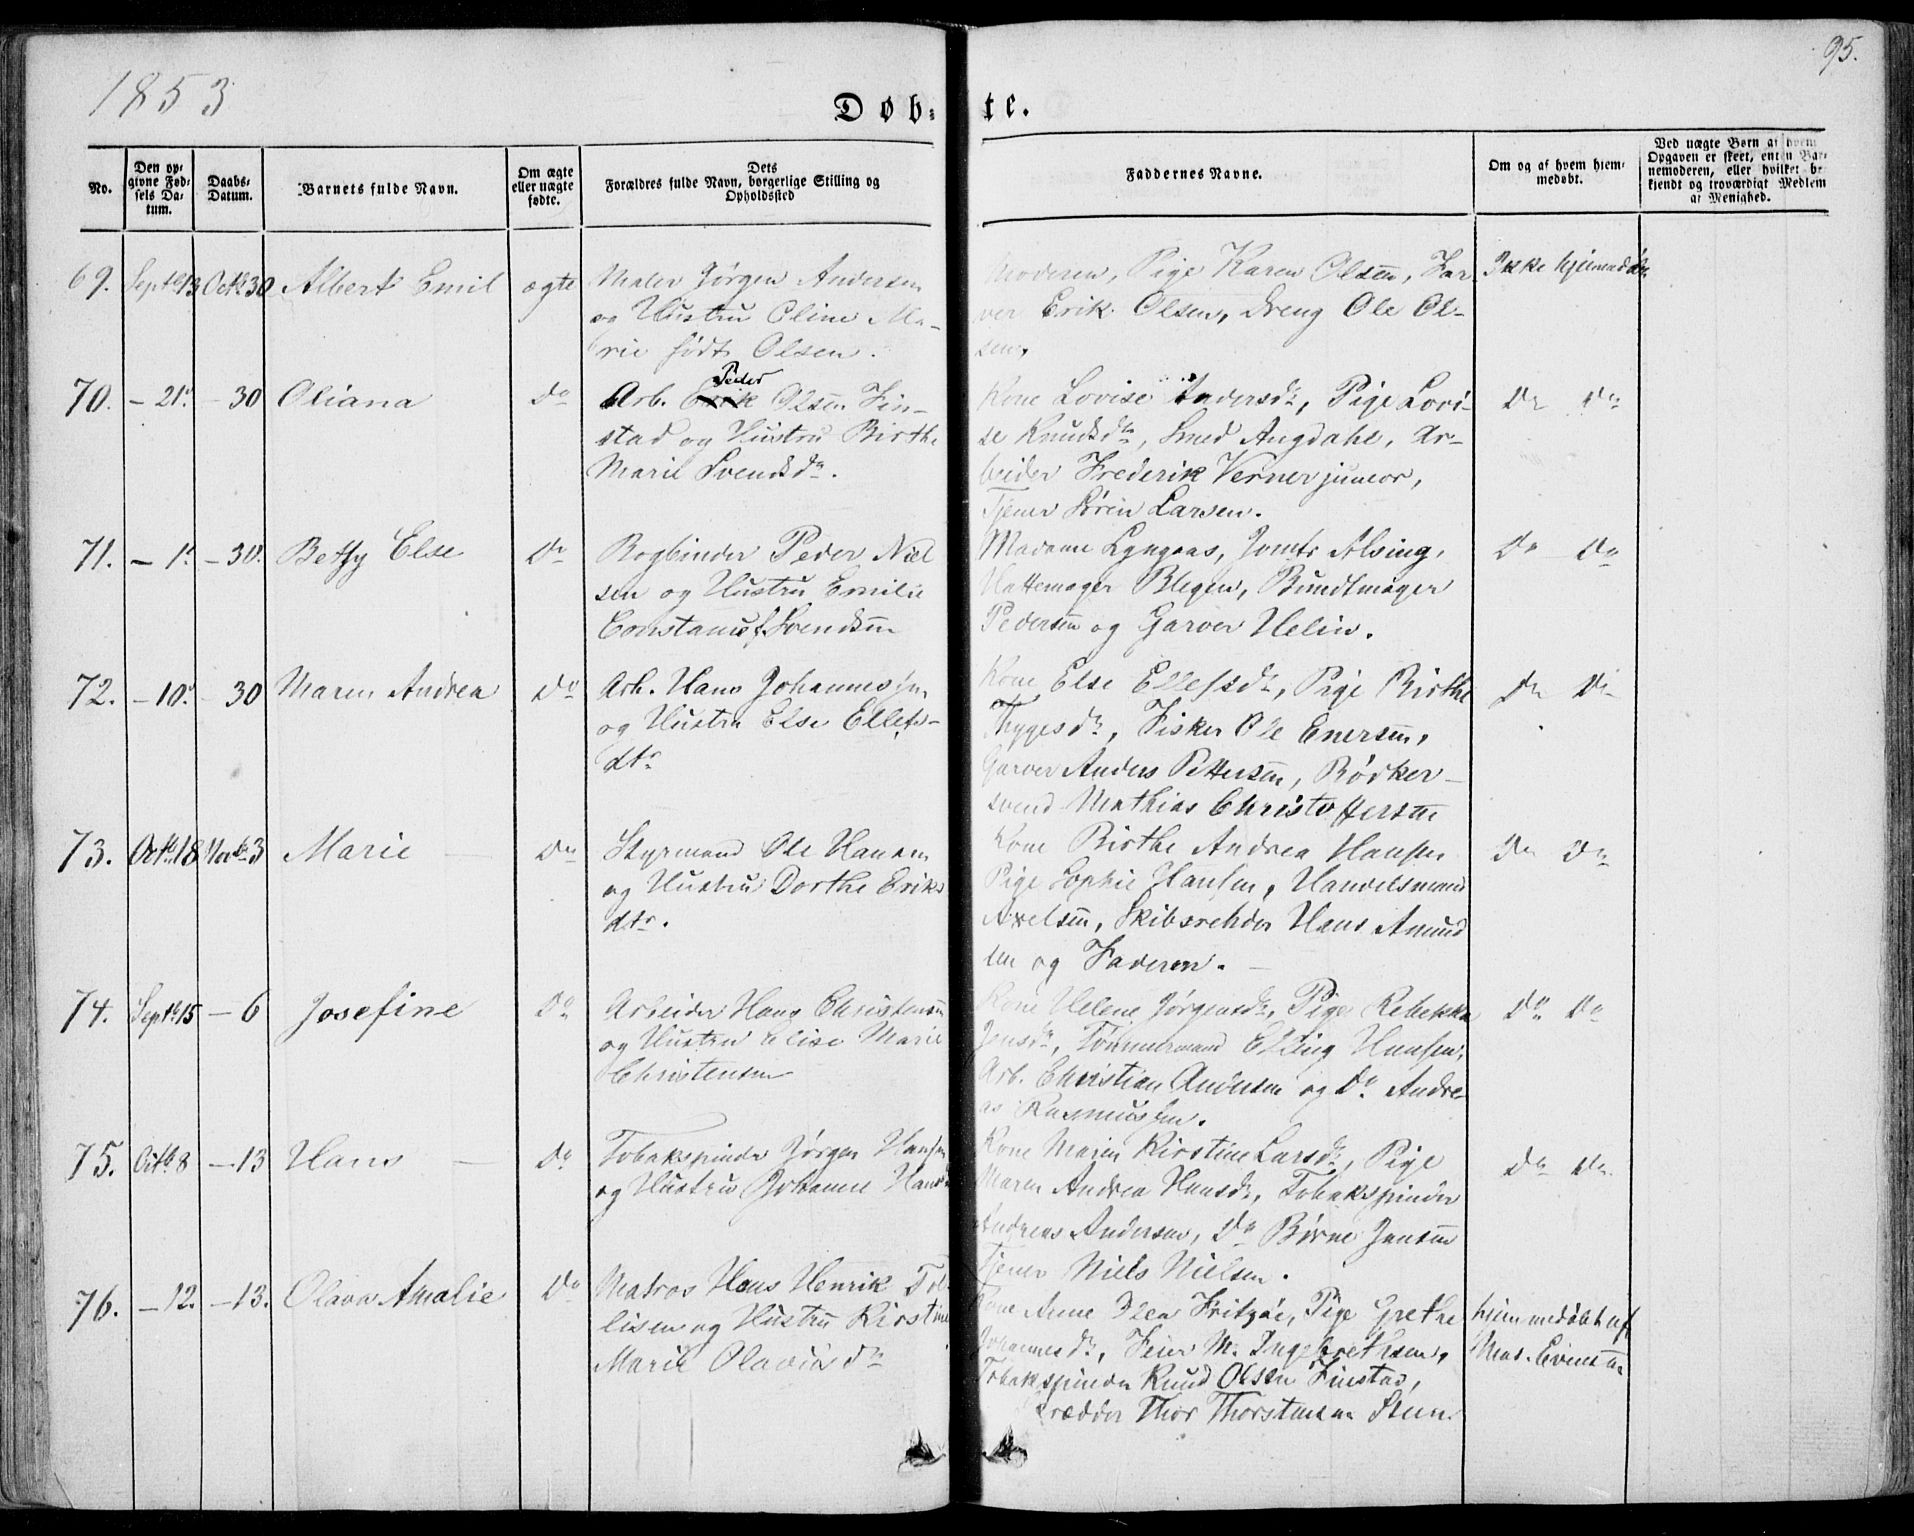 1853
95.
Døb= te.
No.
Den op=
givne Fød=
sels Da=
tum.
Daabs=
Datum.
Barnets fulde Navn.
Om ægte
eller uægte
fødte.
Dets
Forældres fulde Navn, borgerlige Stilling og
Opholdssted
Faddernes Navne.
Om og af hvem hjem=
medøbt.
Ved uægte Børn af hvem
Opgaven er skeet, enten Bar=
nemoderen, eller hvilket be=
kjendt og troværdigt Medlem
af Menighed.
69. Septbr 13 Octbr 30 Albert Emil ægte
Maler Jørgen Andersen
og Hustru Oline Ma-
rie født Olsen.
Moderen, Pige Karen Olsen, Far
ver Erik Olsen, Dreng Ole Ol-
sen,
Ikke hjemmedøbt
70. - 21. - 30 Oliana Do
Peder
Arb. Erik Olsen Fin-
stad og Hustru Birthe
Marie Svendsdr.
Kone Lovise Andersdr, Pige Lovi-
se Knudsdr, Smed Angdahl, Ar-
beider Frederik Verner junior,
Tjener Sören Larsen.
Do Do
71. - 1. - 30. Betzy Else Do
Bogbinder Peder Niel
sen og Hustru Emilie
Constance f. Svendsen
Madame Lyngaas, Jomfr Alsing,
Hattemager Blegen, Bundtmager
Pedersen og Garver Helin.
Do Do
72. - 10. - 30 Maren Andrea Do
Arb. Hans Johannessen
og Hustru Else Ellefs-
dtr
Kone Else Ellefsdr, Pige Birthe
Thygesdr, Fisker Ole Enersen,
Garver Anders Pettersen, Bødker-
svend Mathias Christoffersen
Do Do
73. Octbr 18 Novbr 3 Marie Do
Styrmand Ole Hansen
og Hustru Dorthe Eriks
dtr.
Kone Birthe Andrea Hansen
Pige Sophie Hansen, Handelsmand
Axelsen, Skibsrehder Hans Amund
sen og Faderen.
Do Do
74. Septbr 15 - 6 Josefine Do
Arbeider Hans Christensen
og Hustru Elise Marie
Christensen
Kone Helene Jørgensdr, Pige Rebekka
Jensdr, Tömmermand Elling Hansen,
Arb. Christian Andersen og Do Andre-
as Rasmussen.
Do Do
75. Octbr 8 - 13 Hans Do
Tobakspinder Jørgen Hansen
og Hustru Johanne Hans
Kone Maren Kirstine Larsdr, Pige
Maren Andrea Hansdr, Tobakspinder
Andreas Andersen, Do Börne Jensen
Tjener Niels Nielsen.
Do Do
76. - 12. - 13. Olava Amalie Do
Matros Hans Henrik Tol
lisen og Hustru Kirstine
Marie Olavesdr
Kone Anne Olea Fritzøe, Pige Grethe
Johannesdr, Feier M. Ingebrethsen,
Tobakspinder Knud Olsen Finstad,
Skrædder Thor Thorstensen Steen
hjemmedøbt af
Mad. Evensen